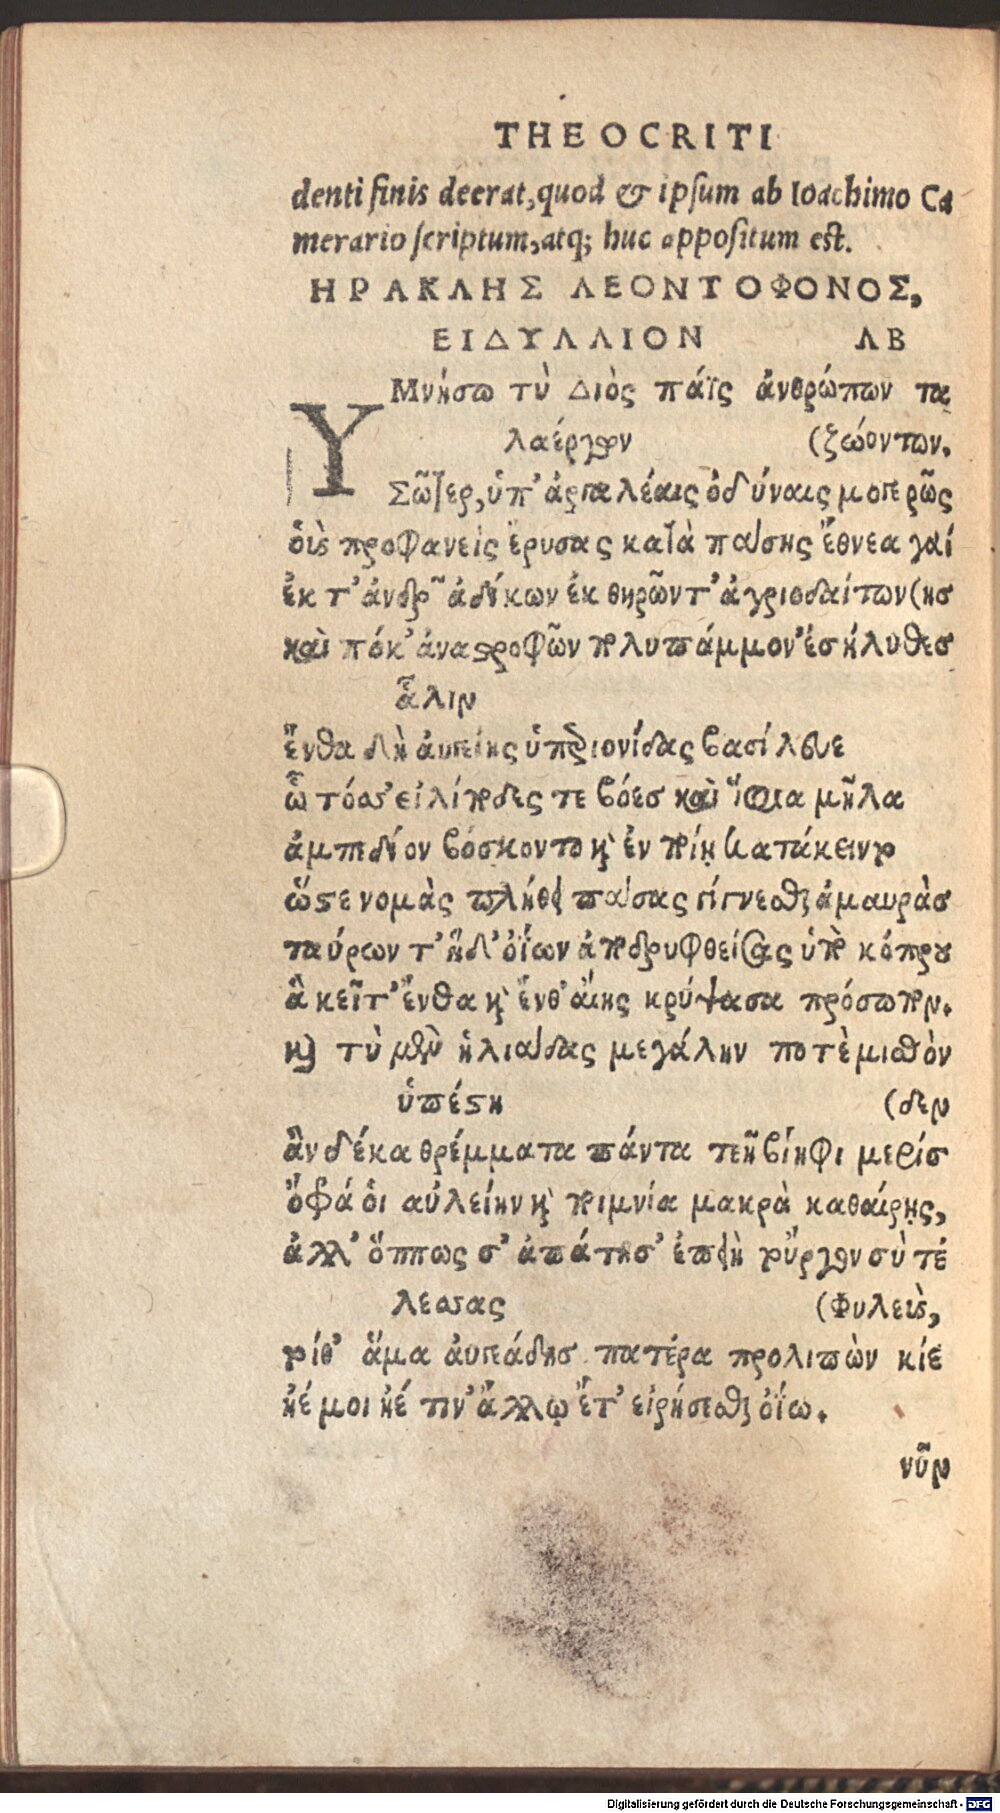 THEOCRITI
denti finis deerat, quod & ipsum ab Ioachimo Ca
merario scriptum, atq; huc appositum est.
ΗΡΑΚΛΗΣ ΛΕΟΝΤΟΦΟΝΟΣ,
ΕΙΔΥΛΛΙΟΝ ΛΒ
ΥΜνήσω τὺ Διὸς πάϊς ἀνθρώπων τα
λαέργων (ζώοντων.
Σῶτερ, ὑπ' ἀργαλέαις ὀδύναις μογερῶς
προφανεὶς ἔρυσας κατὰ πάσης ἔθνεα γαί
ἐκ τ' ἀνδρῶν ἀδίκων ἐκ θηρῶν τ' ἀγριοδαίτων (ης
καὶ πόκ' ἀναστροφῶν πολυπάμμον' ἐσήλυθες
ἆλιν
ἔνθα δὴ αὐγείης ὑπεριονίδας βασίλευε
ᾧ τόσσ' εἰλίποδες τε βόες καὶ μῆλα
ἀμπεδίον βόσκοντο καὶ ἐν κατάκειντο
ὥστε νομὰς πλήθει πάσας γίγνεσθαι ἀμαυρὰς
ταύρων τ' ἠδ' ὀΐων ἀποδρυφθείσας ὑπὸ κόπρου
ἃ κεῖτ' ἔνθα καὶ ἔνθ' αἴης κρύψασα πρόσωπον.
καὶ τὺ μὲν ἡλιάδας μεγάλην ποτὲ μισθὸν
ὑπέστη (δεν
ἂν δέκα θρέμματα πάντα τεῇ βίηφι μερίσ
ὄφρά οἱ αὐλείην καὶ μακρὰ καθαίρῃς,
ἀλλ' ὅππως σ' ἀπάτησ' ἐπεὶ ἢ τὤργον σὺ τέ
λεσσας (Φυλεὺς,
τίθ' ἅμα αὐγεάδης πατέρα προλιπὼν κίε
ἠέ μοι ἠέ τιν' ἄλλῳ ἔτ' εἰρήσεσθαι ὀΐω.
νῦν
Digitalisierung gefördert durch die Deutsche Forschungsgemeinschaft - DFG